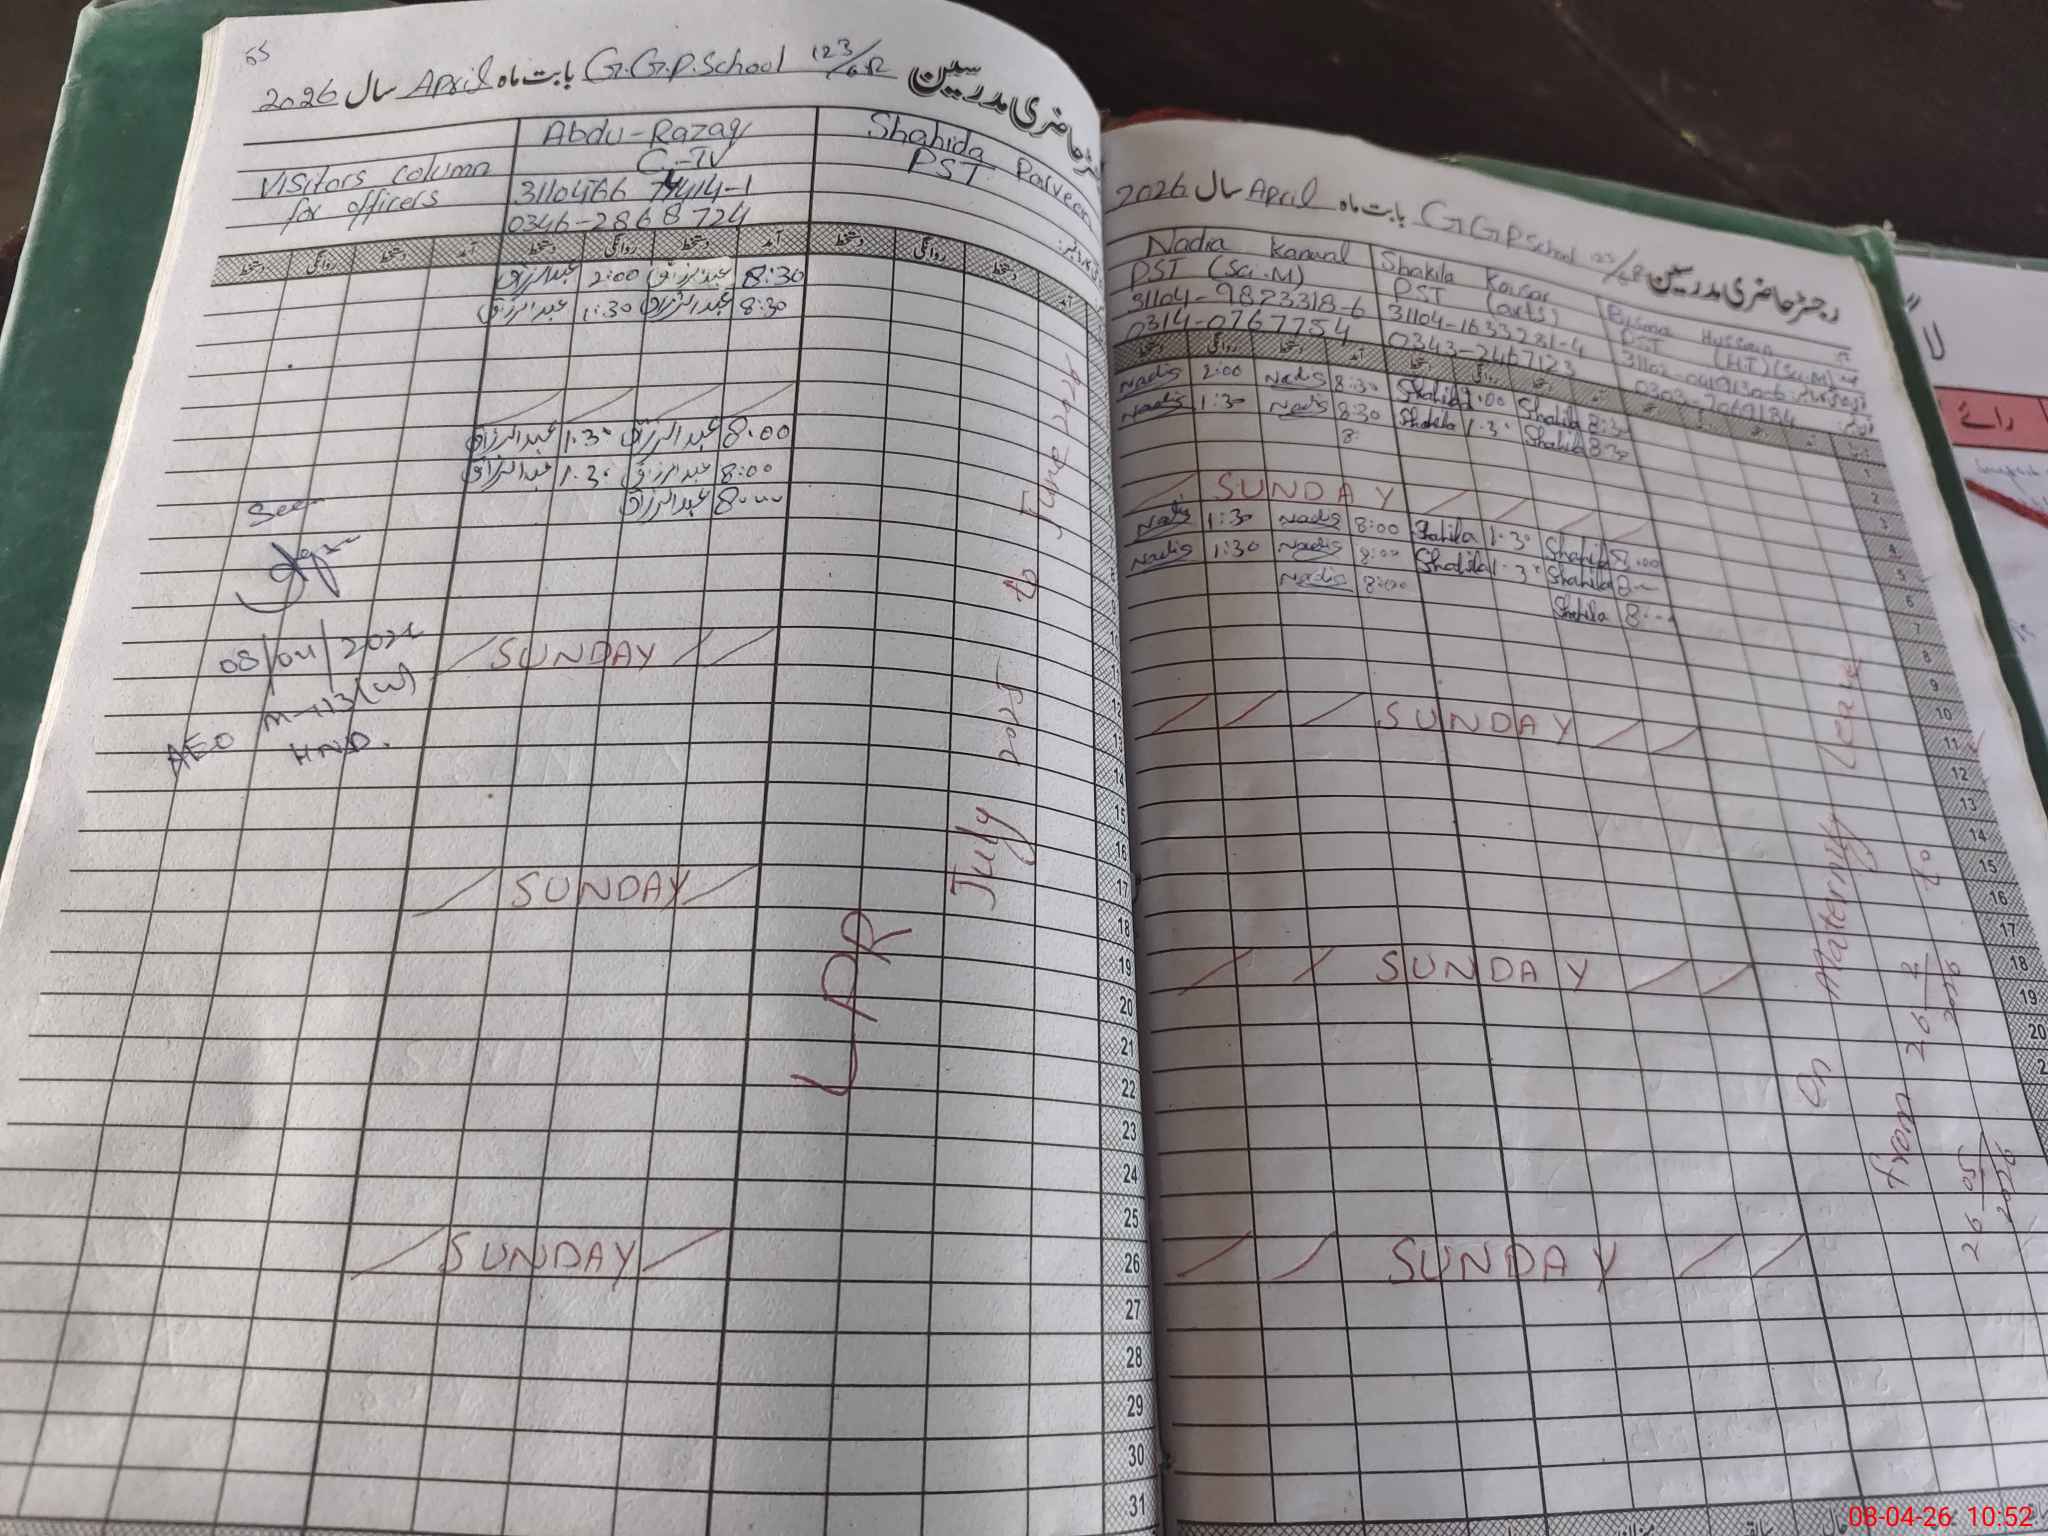 65
2026 سال April بابت ماہ G.G.P.School 123/6R رجسٹر حاضری مدرسین
Visitors column for officers
Abdu-Razaq
C-IV
0346-2868724
Shahida Parveen
PST
دستخط روانگی دستخط آمد دستخط روانگی دستخط آمد دستخط روانگی دستخط آمد
عبدالرزاق 2:00 عبدالرزاق 8:30
عبدالرزاق 1:30 عبدالرزاق 8:30
عبدالرزاق 1.30 عبدالرزاق 8:00
عبدالرزاق 1.30 عبدالرزاق 8:00
عبدالرزاق 8:00
Seen
08/04/2026
AEO M-113(W)
HND.
SUNDAY
SUNDAY
SUNDAY
LPR
July 2025 to June 2026
10
11
12
13
14
15
16
17
18
19
20
21
22
23
24
25
26
27
28
29
30
31
2026 سال April بابت ماہ G G P School 123/6R رجسٹر حاضری مدرسین
Nadia Kanwal
PST (Sci.M)
31104-9823318-6
0314-0767754
Shakila Kausar
PST (arts)
31104-1633281-4
0343-2467123
Hussain
PST (HT)(Sci.M)
0303-7069184
دستخط روانگی دستخط آمد دستخط روانگی دستخط آمد
Nadia 2:00 Nadia 8:30 Shakila 2:00 Shakila 8:30
Nadia 1:30 Nadia 8:30 Shakila 1.30 Shakila 8:30
8:
SUNDAY
Nadia 1:30 Nadia 8:00 Shakila 1.30 Shakila 8:00
Nadia 1:30 Nadia 8:00 Shakila 1.30 Shakila 8:00
Nadia 8:00 Shakila 8:00
SUNDAY
SUNDAY
SUNDAY
On Maternity Leave
from 26/2/2026 to
26/05/2026
1
2
3
4
5
6
7
8
9
10
11
12
13
14
15
16
17
18
19
20
2
رائے
08-04-26 10:52